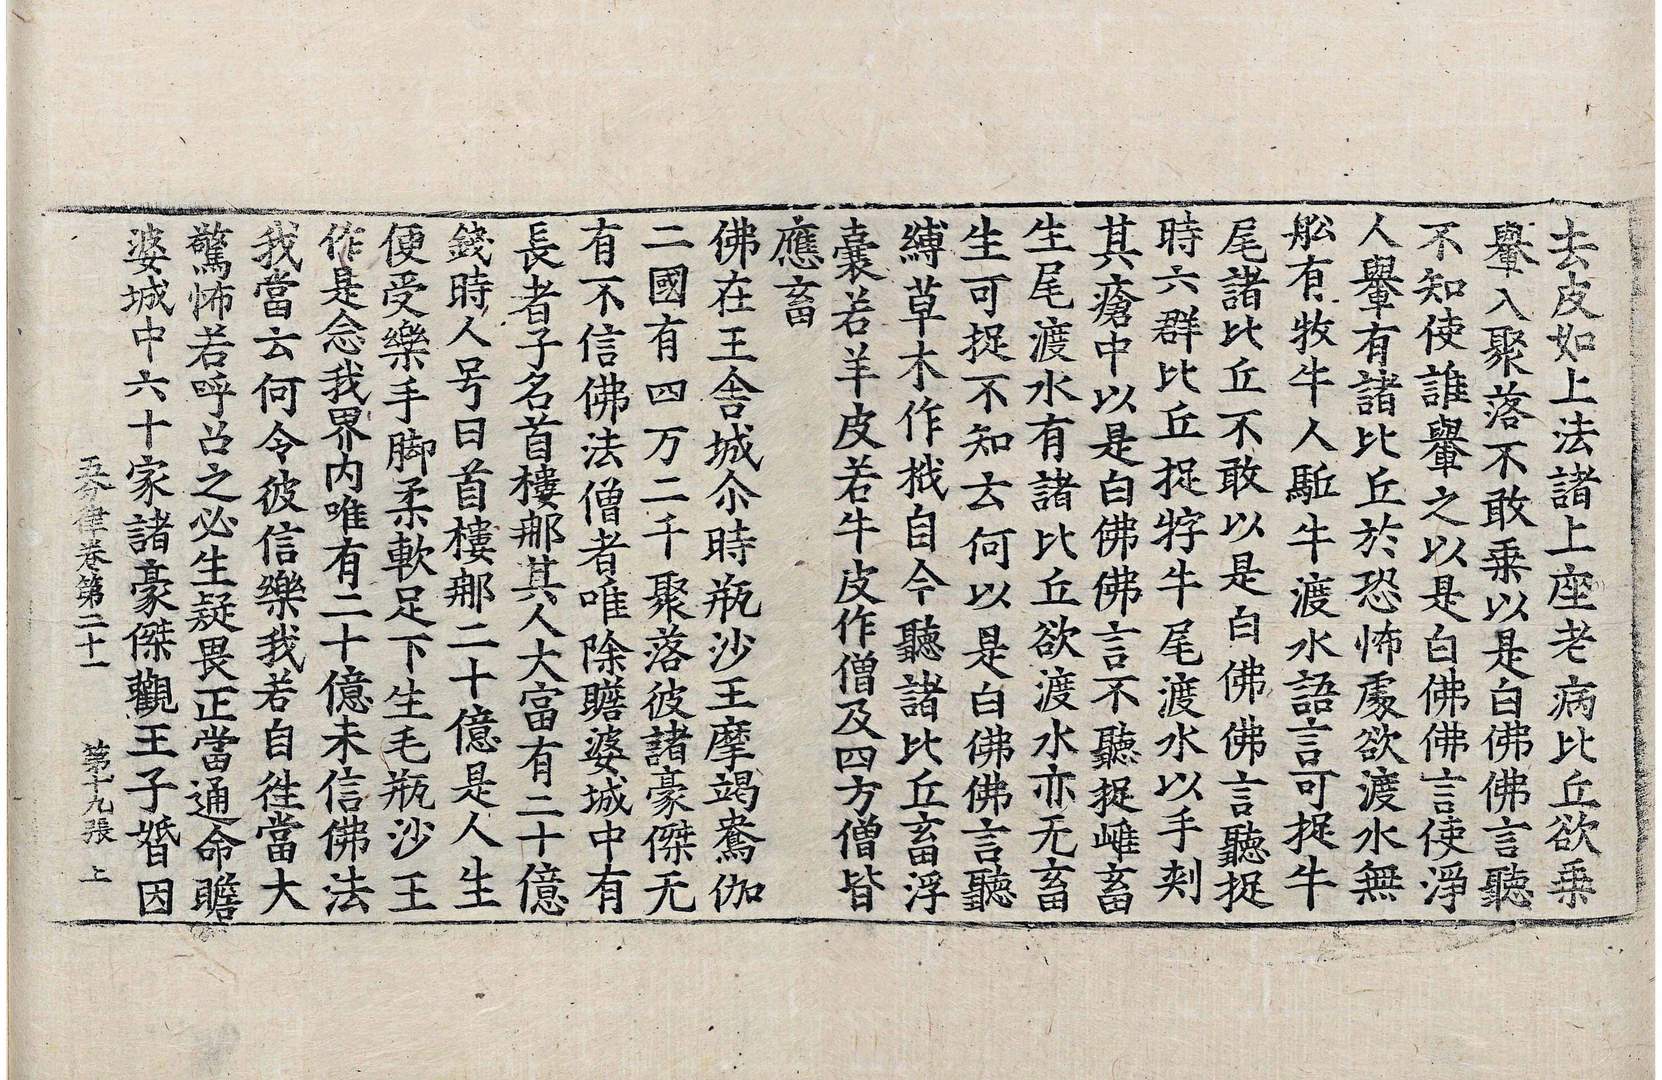 去皮如上法諸上座老病比丘欲乗
轝入聚落不敢乗以是白佛佛言聽
不知使誰轝之以是白佛佛言使淨
人轝有諸比丘於恐怖處欲渡水無
舩有牧牛人駈牛渡水語言可捉牛
尾諸比丘不敢以是白佛佛言聽捉
時六群比丘捉牸牛尾渡水以手刾
其瘡中以是白佛佛言不聽捉雌畜
生尾渡水有諸比丘欲渡水亦无畜
生可捉不知云何以是白佛佛言聽
縛草木作栰自今聽諸比丘畜浮
囊若羊皮若牛皮作僧及四方僧皆
應畜
佛在王舍城尒時瓶沙王摩竭鴦伽
二國有四万二千聚落彼諸豪傑无
有不信佛法僧者唯除瞻婆城中有
長者子名首樓那其人大富有二十億
錢時人号曰首樓那二十億是人生
便受樂手脚柔軟足下生毛瓶沙王
作是念我界内唯有二十億未信佛法
我當云何令彼信樂我若自往當大
驚怖若呼召之必生疑畏正當通命瞻
婆城中六十家諸豪傑觀王子婚因
五分律卷第二十一 第十九張 上